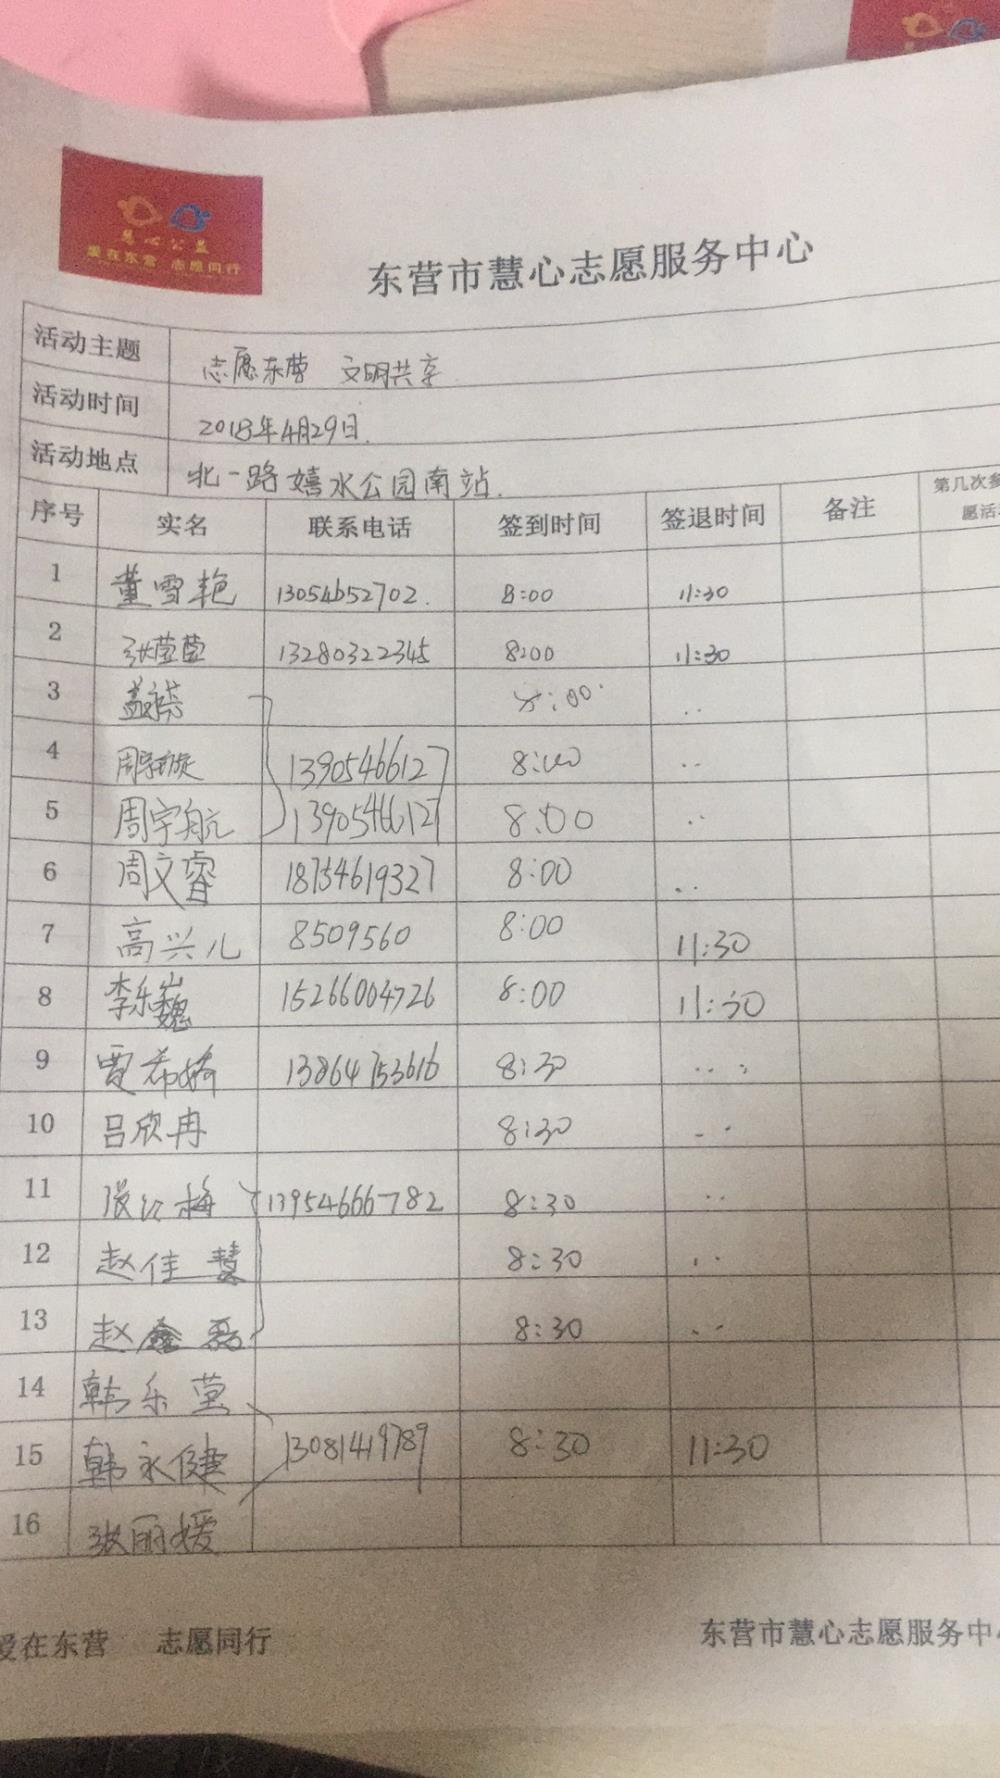 慧心公益
爱在东营 志愿同行
东营市慧心志愿服务中心
活动主题 志愿东营 文明共享
活动时间 2018年4月29日.
活动地点 北一路嬉水公园南站.
序号 实名 联系电话 签到时间 签退时间 备注 第几次参
愿活
1 董雪艳 13054652702. 8:00 11:30
2 张莹莹 13280322345 8:00 11:30
3 8:00 ..
4 周宇璇 13905466127 8:00 ..
5 周宇航 13905466127 8:00 ..
6 周文睿 18754619327 8:00 ..
7 高兴儿 8509560 8:00 11:30
8 李乐巍 15266004726 8:00 11:30
9 贾希娇 13864753616 8:30
10 吕欣冉 8:30
11 张红梅 13954666782 8:30 ..
12 赵佳慧 8:30 ..
13 赵鑫磊 8:30 ..
14 韩乐莹
15 韩永健 13081419789 8:30 11:30
16 张丽媛
爱在东营 志愿同行 东营市慧心志愿服务中心